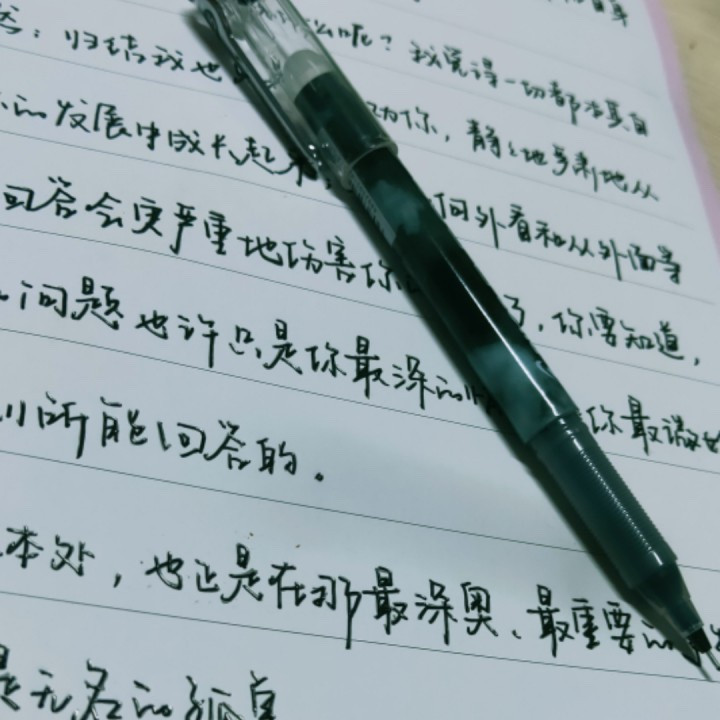 答：归结我也 么呢？我觉得一切都本其自
的发展中成长起来 劝你，静静地学剃地从
回答会更严重地伤害你 向外看和从外面等
问题也许只是你最深的情 了，你要知道，
所能回答的。 你最微妙
本处，也正是在那最深奥、最重要的
是无名的孤身